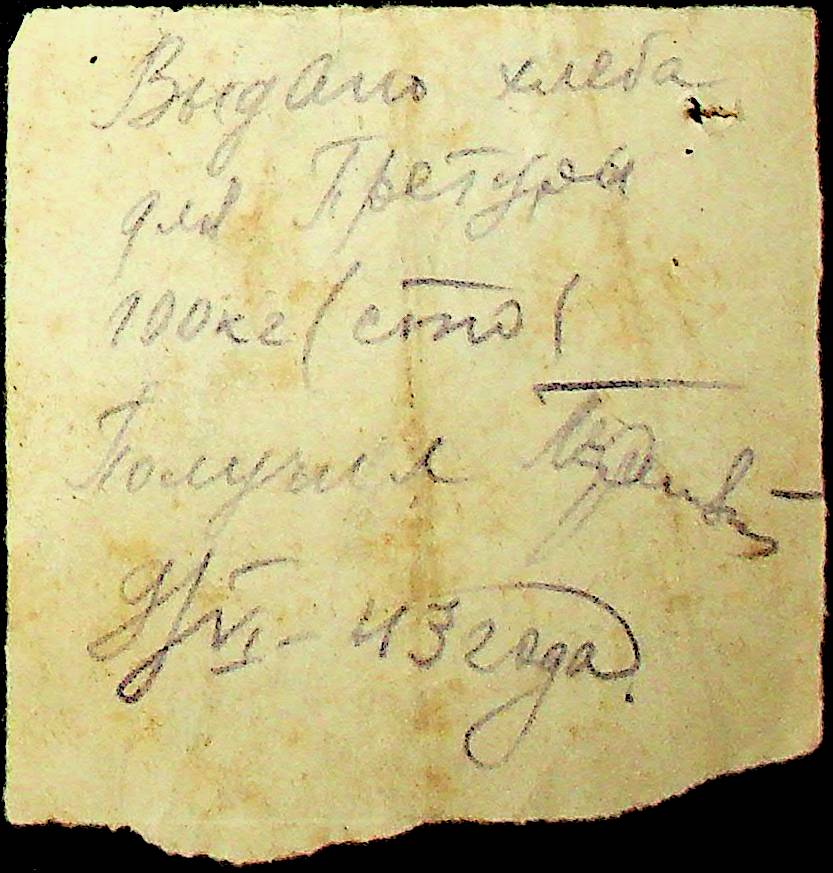 Выдано хлеба
для Претуры
100кг (сто(
Получил
VI - 43 года.